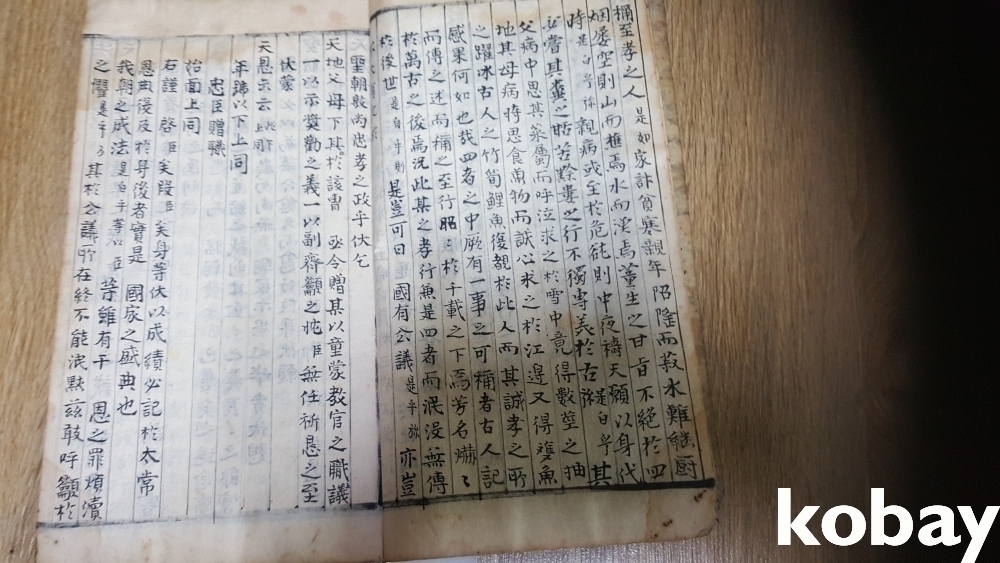 稱至孝之人 是如家計貧寒親年 陷陰而菽水難繼厨
烟屢空則山而樵焉水而漁焉董生之甘旨不絶於四
時 是白乎弥 親病或至於危砥則中夜禱天願以身代
必嘗其糞之甛苦黔婁之行不獨專美於古 是白乎 其
父病中思其藥屬而呼泣求之於雪中竟得數莖之抽
地其母病時思食魚物而誠心求之於江邊又得雙魚
之躍冰古人之竹筍鯉魚復覩於此人而其誠孝之所
感果何如也哉四者之中厥有一事之可稱者古人記
而傳之述而稱之至行昭 於千載之下焉芳名爀〻
於萬古之後焉況此某之孝行無是四者而泯没無傳
於後世 是白乎則 是豈可曰 國有公議 是乎弥 亦豈
聖朝敦尚忠孝之政乎伏乞
天地父母下其於該曹 亟令贈其以童蒙教官之職議
一以示奬勸之義一以副齊籲之忱臣無任祈恳之至
伏蒙
天恩示云 上同
年歸以下上同
忠臣贈職
治面上同
石謹 啓臣矣段臣矣身等伏以成績必記於太常
恩典復及於身後者實是 國家之盛典也
我朝之成法 是白乎等以 臣 等雖有干 恩之罪煩瀆
之懼 是乎乃 其於公議所在終不能泯默玆敢呼籲於